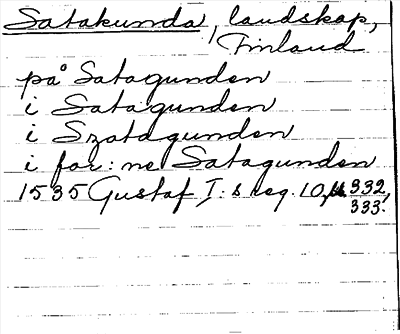 Satakunda, landskap,
Finland
på Satagunden
i Satagunden
i Szatagunden
i for: ne Satagunden
1535 Gustaf I:s reg. 10, 332,
333.